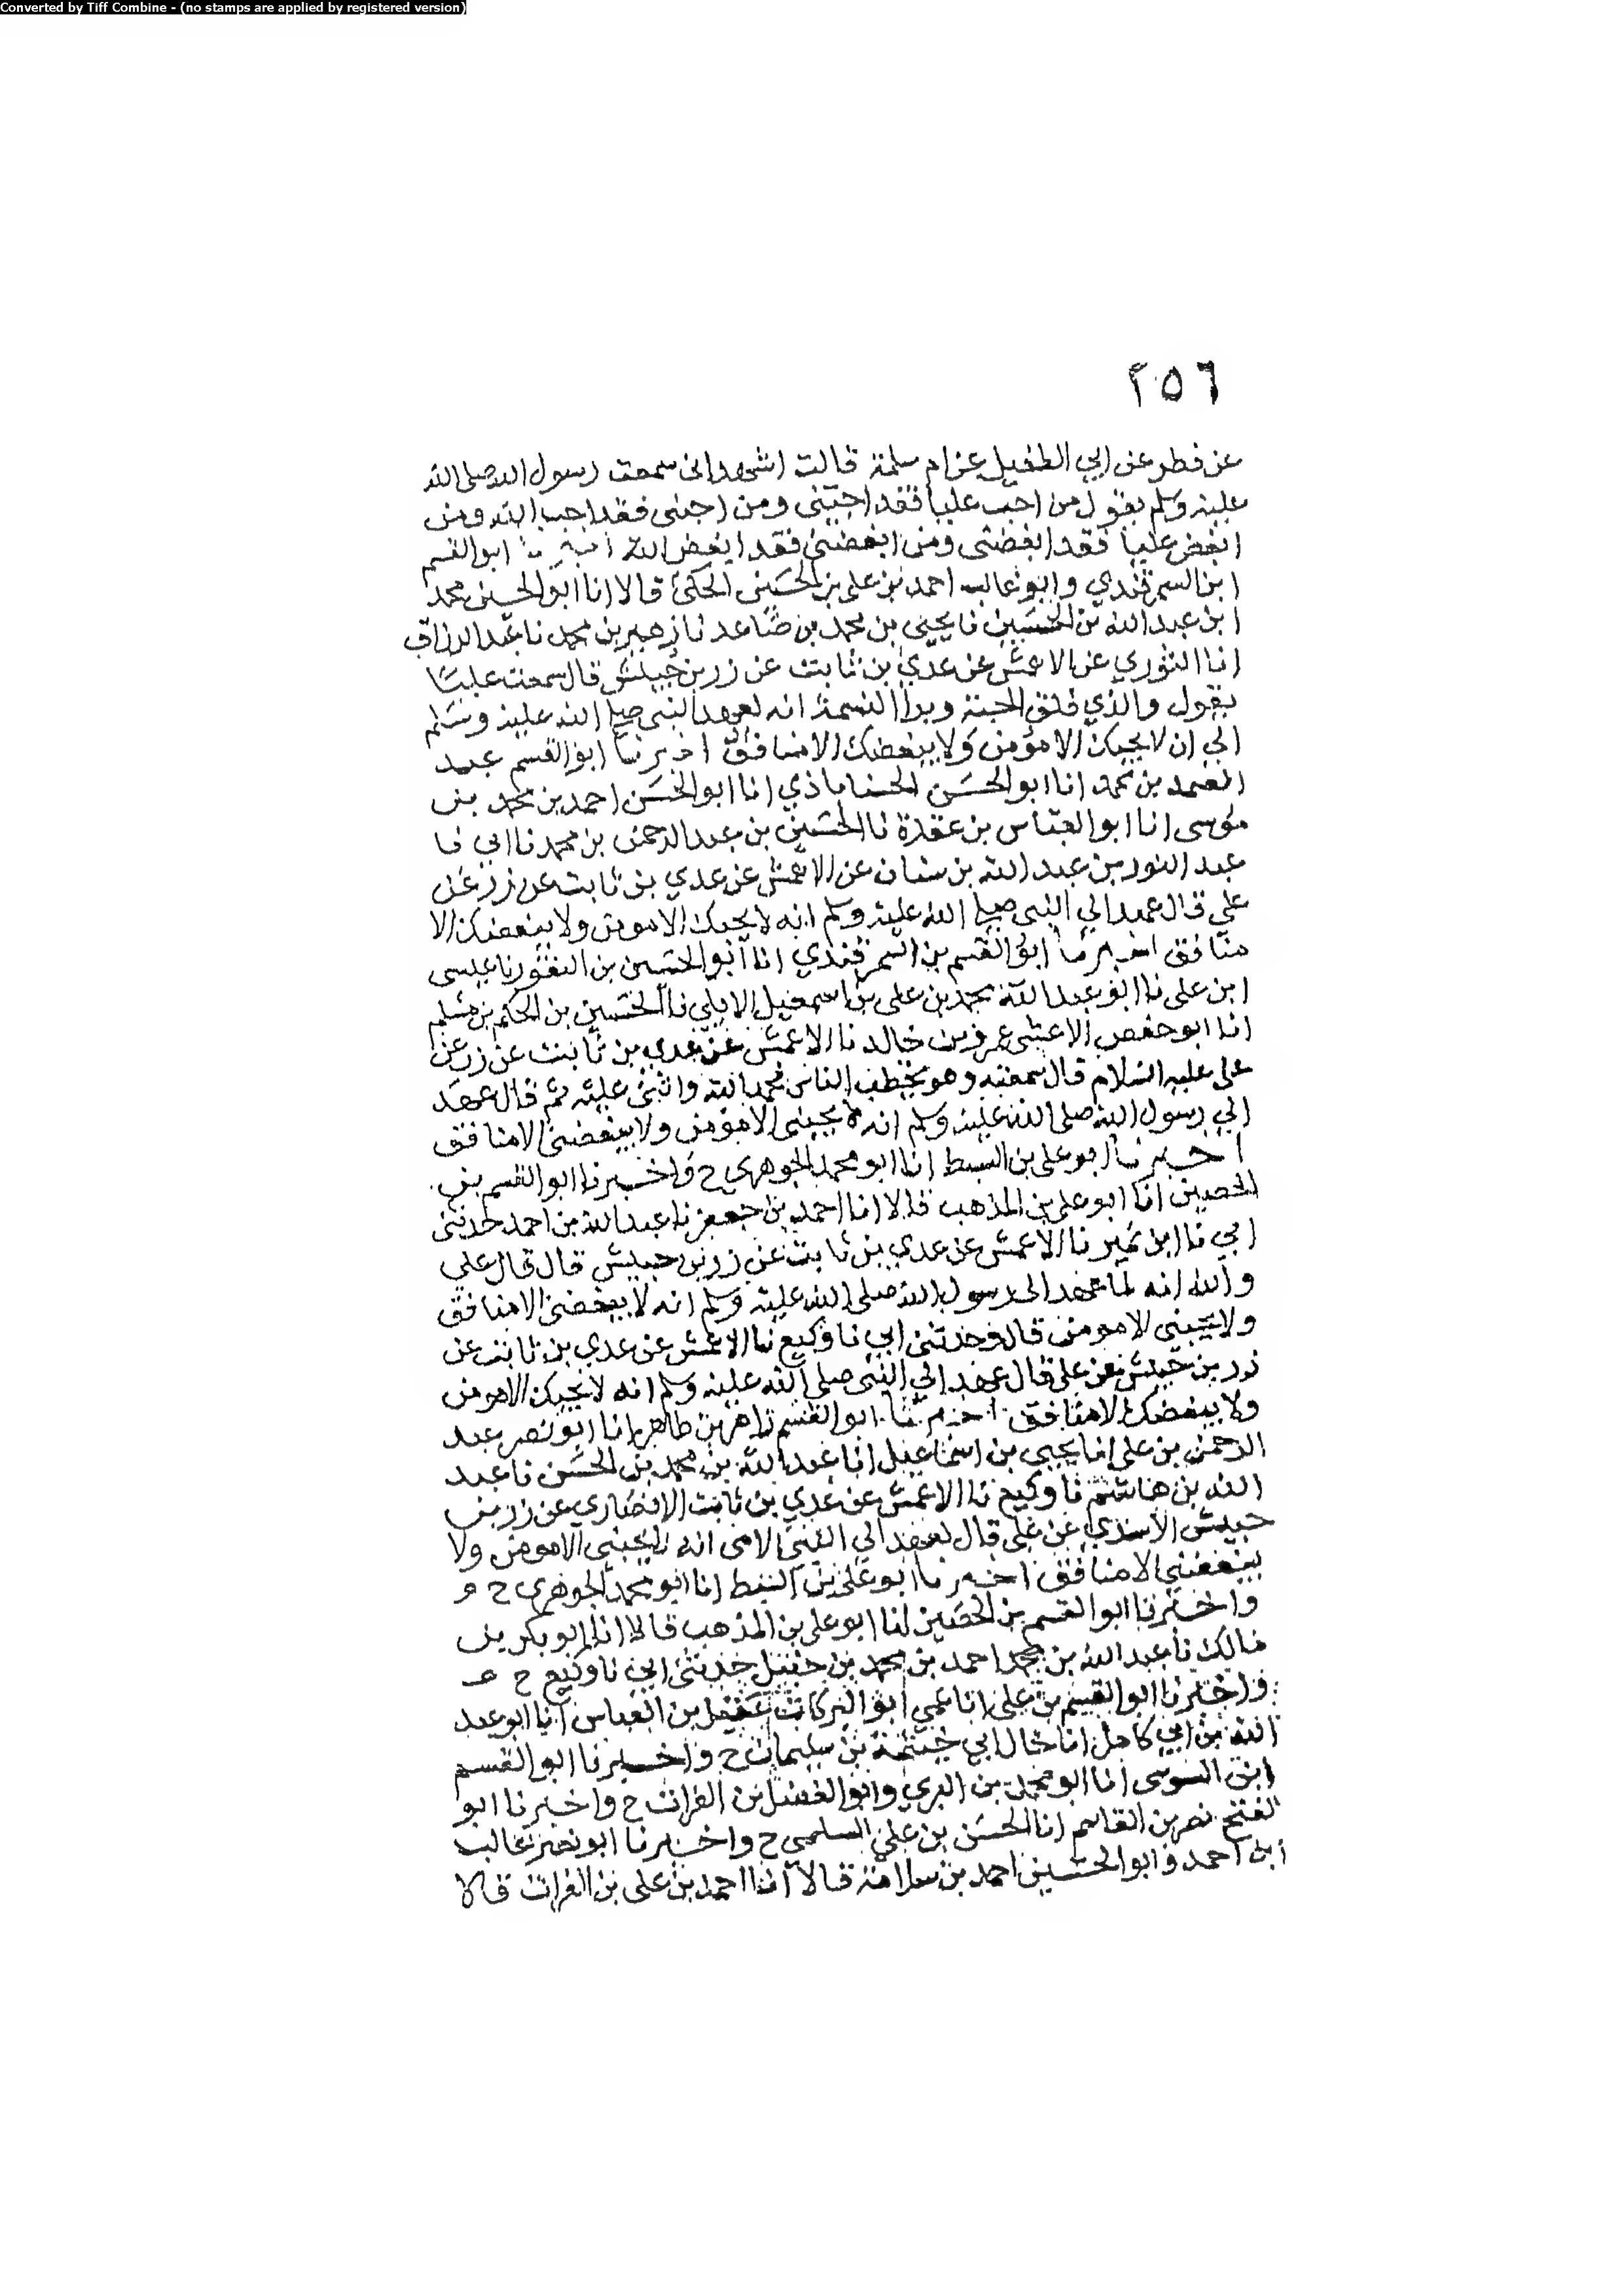 Converted by Tiff Combine - (no stamps are applied by registered version)
٢٥٦
عن فطر عن ابي الطفيل عن ام سلمة قالت اشهد انى سمعت رسول الله صلى الله
عليه وسلم يقول من احب عليا فقد احبنى ومن احبنى فقد احب الله ومن
ابغض عليا فقد ابغضنى ومن ابغضنى فقد ابغض الله اخبرنا ابو القسم
ابن السمرقندي وابو غالب احمد بن على بن الحسين الحكى قالا انا ابو الحسين محمد
ابن عبد الله بن الحسين نا يحيى بن محمد بن صاعد نا زهير بن محمد نا عبد الرزاق
انا الثوري عن الاعمش عن عدي بن ثابت عن زر بن حبيش قال سمعت عليا
يقول والذي فلق الحبة وبرا النسمة انه لعهد النبى صلى الله عليه وسلم
الي ان لا يحبك الا مؤمن ولا يبغضك الا منافق اخبرنا ابو القسم عبد
الصمد بن محمد انا ابو الحسن الحسناباذي انا ابو الحسن احمد بن محمد بن
موسى انا ابو العباس بن عقدة نا الحسين بن عبد الرحمن بن محمد نا ابي نا
عبد النور بن عبد الله بن سنان عن الاعمش عن عدي بن ثابت عن زر عن
علي قال عهد الي النبى صلى الله عليه وسلم انه لا يحبك الا مومن ولا يبغضك الا
منافق اخبرنا ابو القسم بن السمرقندي انا ابو الحسين بن النقور نا عيسى
ابن على نا ابو عبد الله محمد بن على بن اسمعيل الايلي نا الحسين بن الحكم بن مسلم
انا ابو حفص الاعشى عمرو بن خالد نا الاعمش عن عدي بن ثابت عن زر عن
على عليه السلام قال سمعته وهو يخطب الناس فحمد الله واثنى عليه ثم قال عهد
الي رسول الله صلى الله عليه وسلم انه لا يحبنى الا مؤمن ولا يبغضنى الا منافق
اخبرنا ابو على بن السبط انا ابو محمد الجوهرى ح واخبرنا ابو القسم بن
الحصين انا ابو على بن المذهب قالا انا احمد بن جعفر نا عبد الله بن احمد حدثنى
ابي نا ابن نمير نا الاعمش عن عدي بن ثابت عن زر بن حبيش قال قال علي
والله انه لما عهد الى رسول الله صلى الله عليه وسلم انه لا يبغضنى الا منافق
ولا يحبنى الا مومن قال وحدثنى ابي نا وكيع نا الاعمش عن عدي بن ثابت عن
زر بن حبيش عن على قال عهد الي النبى صلى الله عليه وسلم انه لا يحبك الا مومن
ولا يبغضك الا منافق اخبرنا ابو القسم زاهر بن طاهر انا ابو نصر عبد
الرحمن بن على انا يحيى بن اسماعيل انا عبد الله بن محمد بن الحسن نا عبد
الله بن هاشم نا وكيع نا الاعمش عن عدي بن ثابت الانصاري عن زر بن
حبيش الاسدي عن على قال لعهد الي النبى الامى انه لا يحبنى الا مومن ولا
يبغضني الا منافق اخبرنا ابو على بن السبط انا ابو محمد الجوهرى ح و
واخبرنا ابو القسم بن الحصين انا ابو على بن المذهب قالا انا ابو بكر بن
مالك نا عبد الله بن احمد بن محمد بن حنبل حدثنى ابي نا وكيع ح
واخبرنا ابو القسم بن على انا عمي ابو البركات عقيل بن العباس انا ابو عبد
الله بن ابي كامل انا خال ابي خيثمة بن سليمان ح واخبرنا ابو القسم
ابن السوسى انا ابو محمد بن البري وابو الفضل بن الفرات ح واخبرنا ابو
الفتح نصر بن القاسم انا الحسن بن على السلمى ح واخبرنا ابو نصر غالب
ابن احمد وابو الحسين احمد بن سلامة قالا انا احمد بن على بن الفرات قالا